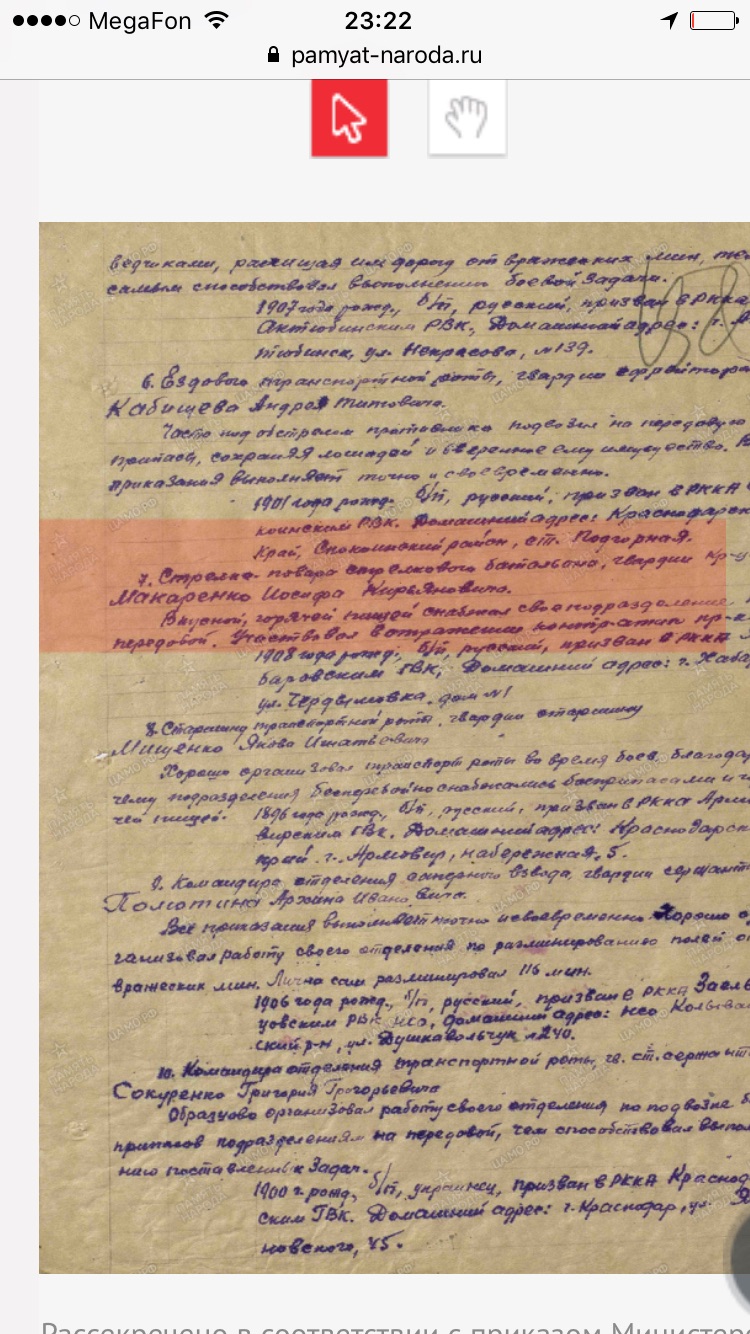 MegaFon 23:22
pamyat-naroda.ru
ведчиками, расчищая им дорогу от вражеских мин, тем
самым способствовал выполнению боевой задачи.
1907 года рожд., б/п, русский, призван в РККА
Актюбинским РВК, Домашний адрес: г. Ак
тюбинск, ул. Некрасова, №139.
6. Ездового транспортной роты, гвардии ефрейтора
Кабищева Андрея Титовича.
Часто под обстрелом противника подвозил на передовую
припасы, сохраняя лошадей и вверенное ему имущество.
приказания выполняет точно и своевременно.
1901 года рожд. б/п, русский, призван в РККА
коинским РВК. Домашний адрес: Краснодарск
Край, Спокоинский район, ст. Подгорная.
7. Стрелка-повара стрелкового батальона, гвардии кр-ца
Макаренко Иосифа Кирьяновича.
Вкусной, горячей пищей снабжал свое подразделение
передовой. Участвовал в отражении контратак пр-ка
1908 года рожд., б/п, русский, призван в РККА
баровским ГВК, Домашний адрес: г. Хаба
ул. Чердымовка, дом №1
8. Старшину транспортной роты, гвардии старшину
Мищенко Якова Игнатьевича
Хорошо организовал транспорт роты во время боев, благодар
чему подразделения бесперебойно снабжались боеприпасами и г
чей пищей. 1896 года рожд., б/п, русский, призван в РККА Арма
вирским ГВК. Домашний адрес: Краснодарск
край. г. Армавир, набережная, 5.
9. Командира отделения саперного взвода, гвардии сержант
Архипа Ивановича.
Все приказания выполняет точно и своевременно. Хорошо ор
ганизовал работу своего отделения по разминированию полей от
вражеских мин. Лично сам разминировал 116 мин.
1906 года рожд., б/п, русский, призван в РККА Заель
цовским РВК НСО, домашний адрес: НСО Колыван
ский р-н, ул. №240.
10. Командира отделения транспортной роты, гв. ст. сержант
Сокуренко Григория Григорьевича
Образцово организовал работу своего отделения по подвозке б
припасов подразделениям на передовой, чем способствовал выпол
нию поставленных задач.
1900 г. рожд., б/п, украинец, призван в РККА Краснод
ским ГВК. Домашний адрес: г. Краснодар, ул. Я
новского, 45.
Рассекречено в соответствии с приказом Министер